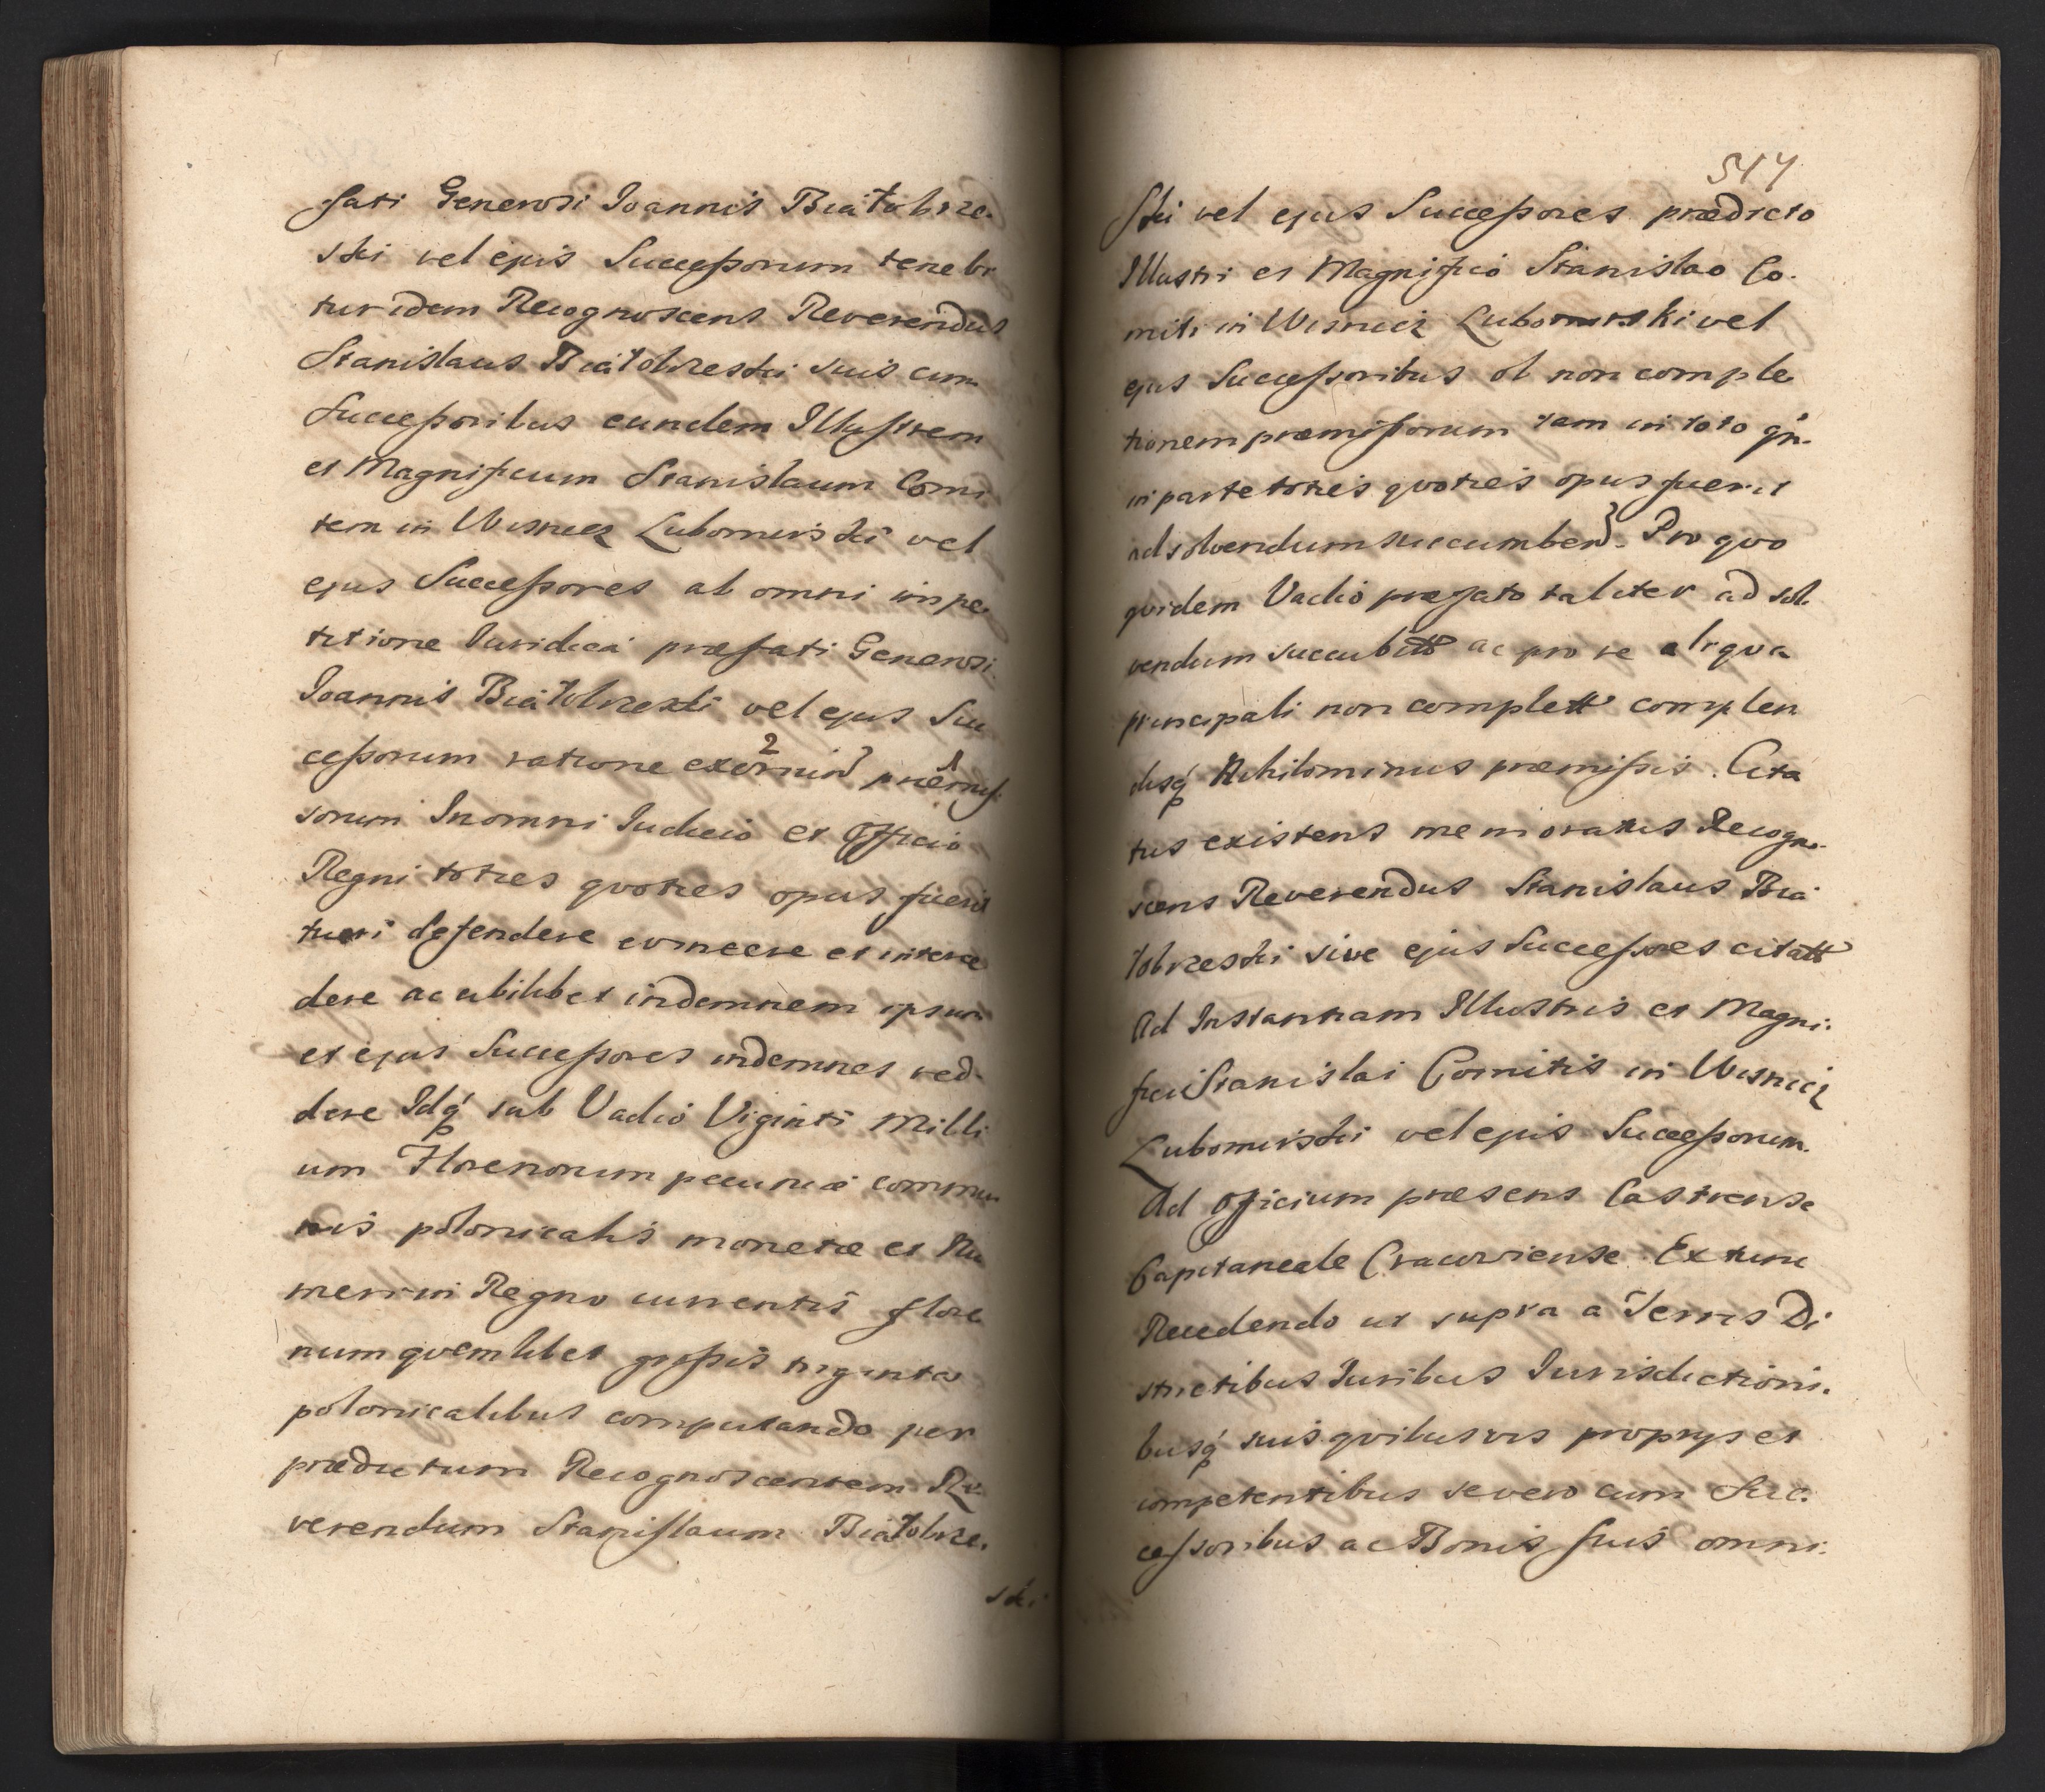 fati Generosi Joannis Białobrze-
ski vel ejus Successorum tenebi
tur idem Recognoscens Reverendus
Stanislaus Białobrzeski suis cum
Successoribus eundem Illustrem
et Magnificum Stanislaum Comi
tem in Wisnicz Lubomirski vel
ejus Successores ab omni impe
titione Juridica præfati Generosi
Joannis Białobrzeski vel ejus Suc
cessorum ratione præmis
sorum In omni Judicio et Officio
Regni toties quoties opus fuerit
tueri defendere evincere et interce
dere ac ubilibet indemnem ipsum
et ejus Successores indemnes red-
dere Idq́ sub Vadio Viginti Milli
um Florenorum pecuniæ commu
nis polonicalis monetæ et Nu
meri in Regno currentis flore
num quemlibet grossis triginta
polonicalibus computando per
prædictum Recognoscentem Re
verendum Stanislaum Białobrze.
ski
547
Ski vel ejus Successores prædicto
Illustri et Magnifico Stanislao Co-
miti in Wisnicz Lubomirski vel
ejus Successoribus ob non comple
tionem præmissorum tam in toto qn.
in parte toties quoties opus fuerit
adsolvendum succumben. Pro quo
quidem Vadio præfato taliter ad sol
vendum succubitt ac pro re aliqua
principali non complett complen
disq́ Nihilominus præmissis. Cita
tus existens memoratus Recogno-
scens Reverendus Stanislaus Bia
łobrzeski sive ejus Successores citatt
Ad Instantiam Illustris et Magni.
fici Stanislai Comitis in Wisnicz
Lubomirski vel ejus Successorum.
Ad Officium præsens Castrense
Capitaneale Cracoviense. Ex tunc
Recedendo ut supra a Terris Di
strictibus Juribus Jurisdictioni.
busq́ suis quibusvis proprys et
competentibus se vero cum Suc.
cessoribus ac Bonis suis omni.